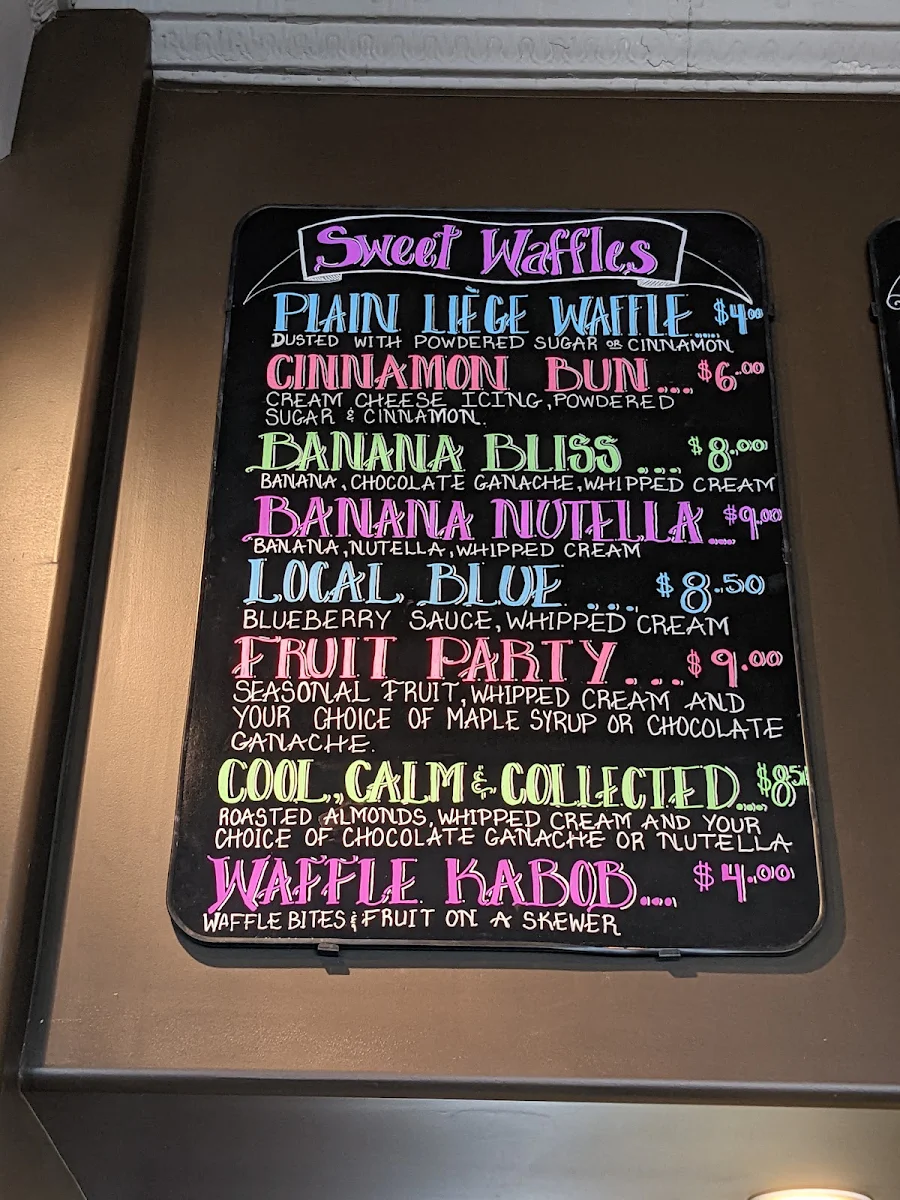 Sweet Waffles
PLAIN LIÈGE WAFFLE .... $4.00
DUSTED WITH POWDERED SUGAR OR CINNAMON
CINNAMON BUN .... $6.00
CREAM CHEESE ICING, POWDERED
SUGAR & CINNAMON.
BANANA BLISS .... $8.00
BANANA, CHOCOLATE GANACHE, WHIPPED CREAM
BANANA NUTELLA .... $9.00
BANANA, NUTELLA, WHIPPED CREAM
LOCAL BLUE .... $8.50
BLUEBERRY SAUCE, WHIPPED CREAM
FRUIT PARTY .... $9.00
SEASONAL FRUIT, WHIPPED CREAM AND
YOUR CHOICE OF MAPLE SYRUP OR CHOCOLATE
GANACHE.
COOL, CALM & COLLECTED .... $8.50
ROASTED ALMONDS, WHIPPED CREAM AND YOUR
CHOICE OF CHOCOLATE GANACHE OR NUTELLA
WAFFLE KABOB .... $4.00
WAFFLE BITES & FRUIT ON A SKEWER